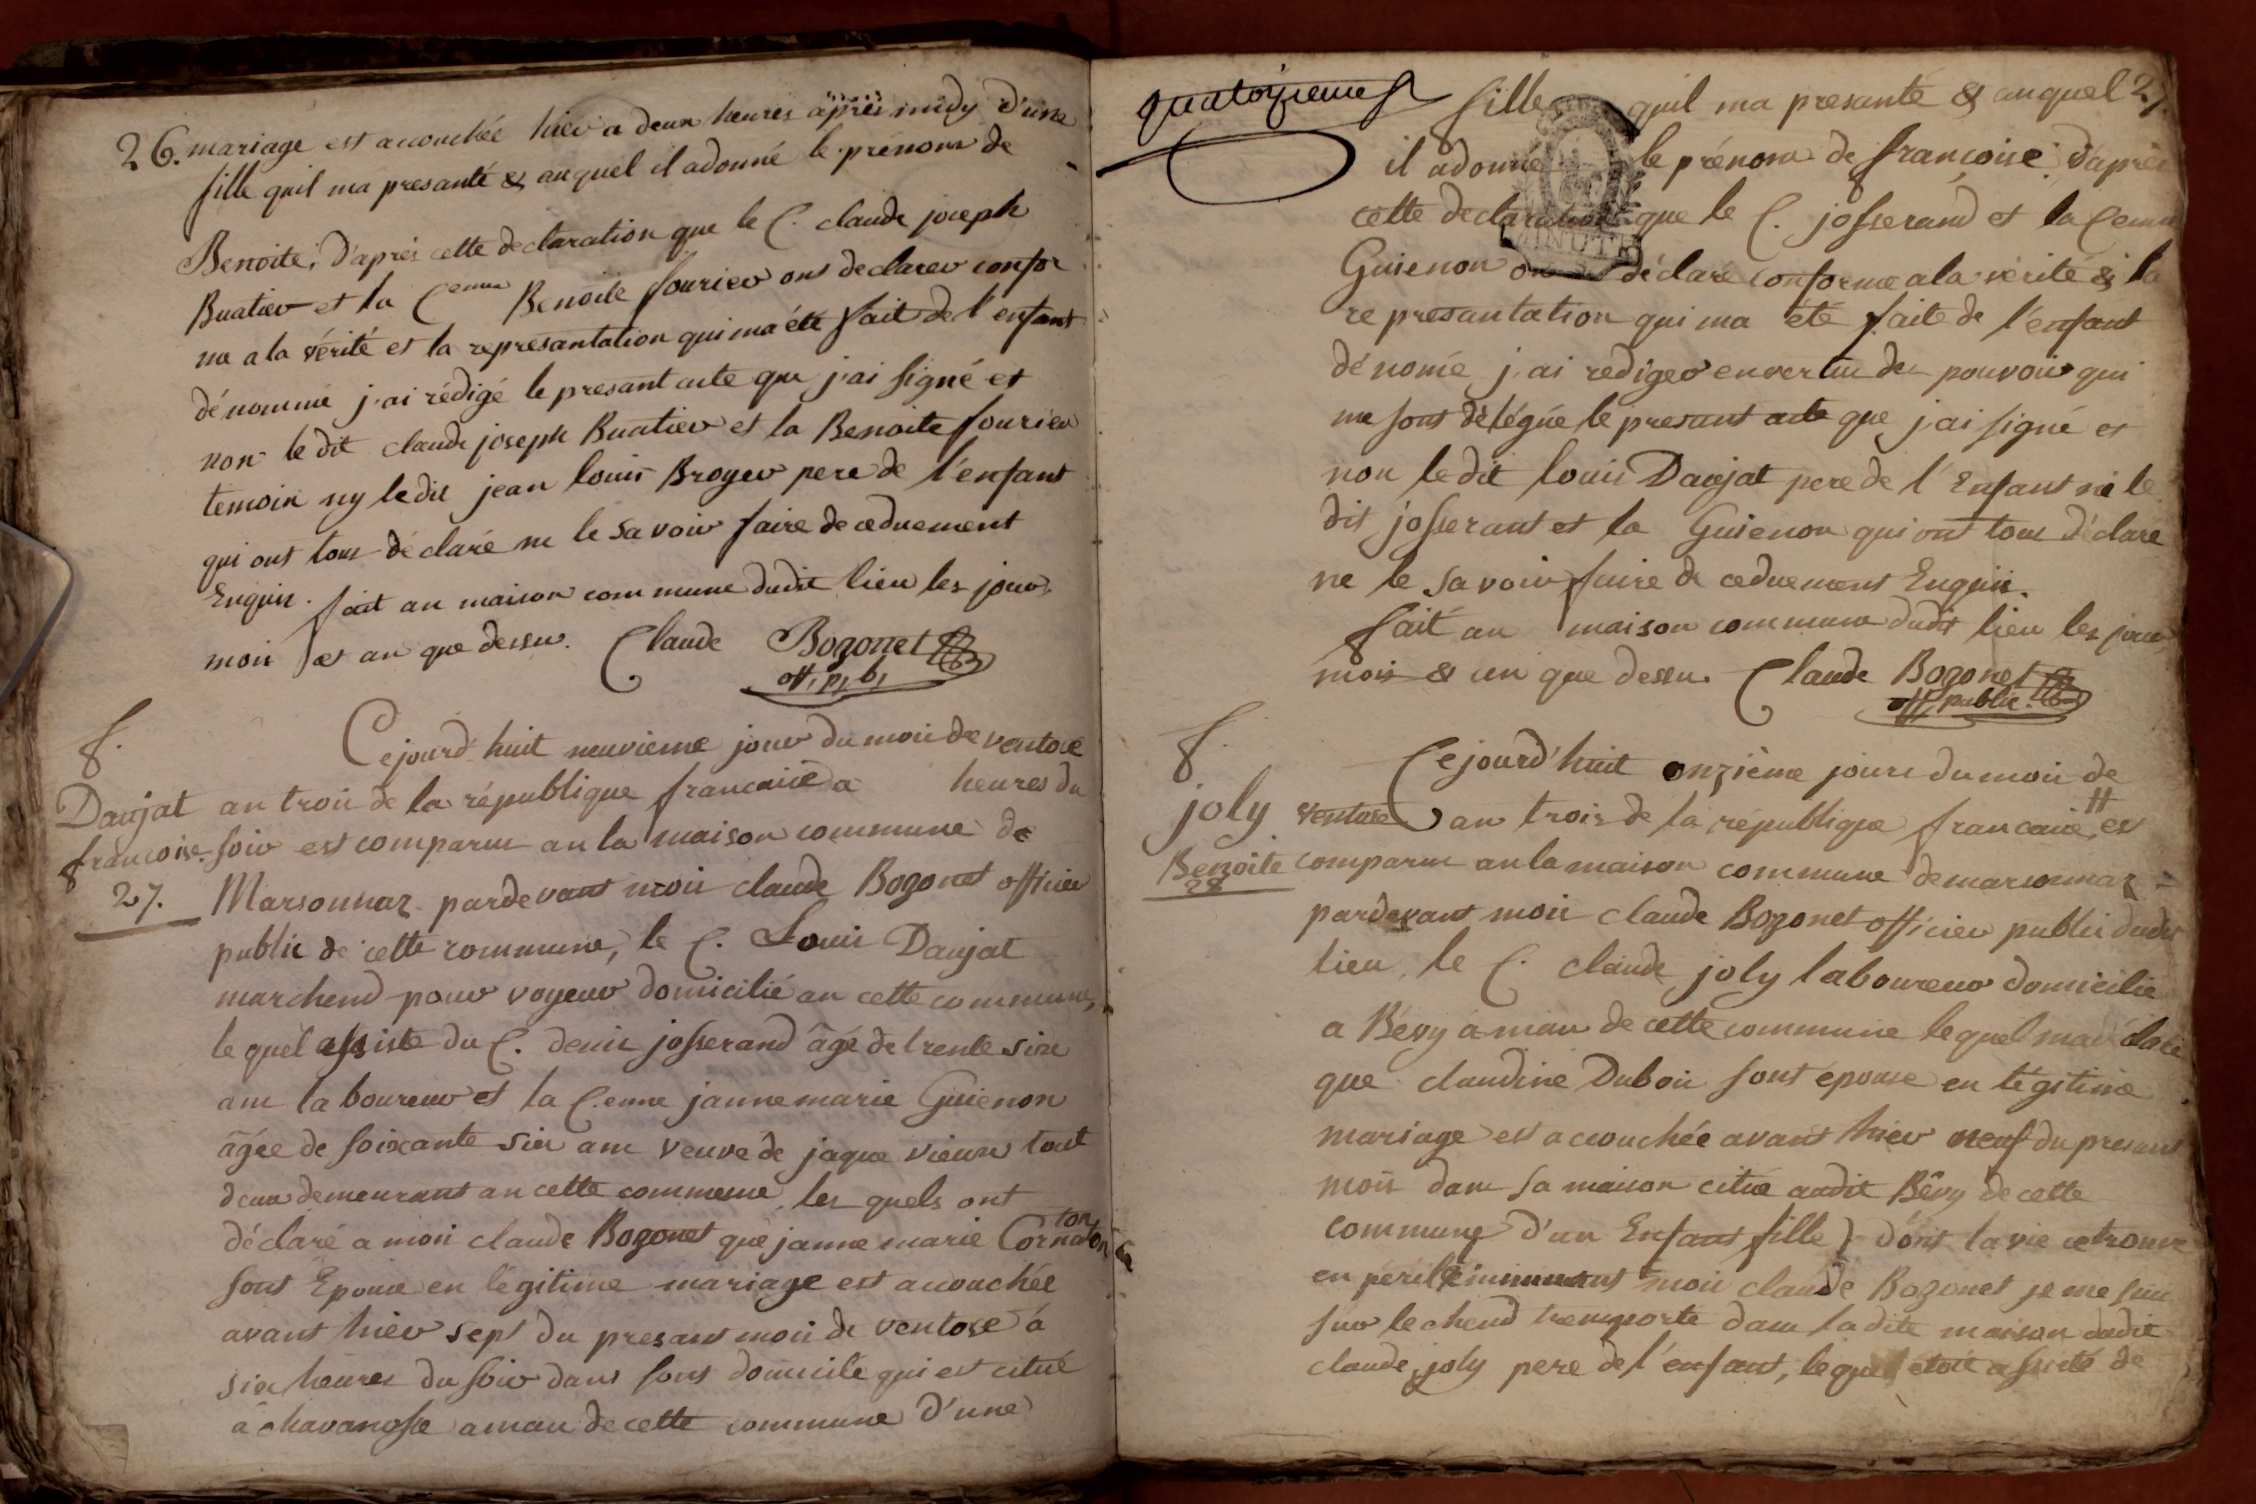 26. mariage est accouchée hier a deux heures après midy d'une
fille quil ma presanté & auquel il adonné le prénom de
Benoite, d'après cette declaration que le C. claude joseph
Buatier et la Cenne Benoite fourier ont declarer confor
me a la vérité et la represantation qui ma été fait de l'enfant
dénommé j'ai rédigé le presant acte que j'ai signé et
non le dit claude joseph Buatier et la Benoite fourier
temoin ny ledit jean louis Broyer pere de l'enfant
qui ont tous déclaré ne le savoir faire de ceduement
Enquis. fait an maison commune dudit lieu les jour,
mois et an que dessu. Claude Bozonet
off, p, b,
f.
Daujat
francoise.
27.
Cejourd'huit neuvieme jour du mois de ventose
an trois de la république francaise a heures du
soir est comparu an la maison commune de
Marsonnaz pardevant moi claude Bozonet officier
public de cette commune, le C. Louis Daujat
marchend pour voyeur domicilié an cette commune,
le quel assisté du C. denis josserand âgé de trente sixe
ans laboureur et la C.enne janne marie Guienon
âgée de soixante six ans veuve de jaque vieux tout
deux demeurant an cette commune les quels ont
déclaré a moi claude Bozonet que janne marie Cornaton
ton
sont Epouse en légitime mariage est accouchée
avant hier sept du presant mois de ventose à
six heures du soir dans sont domicile qui est citué
à chavanosse a mau de cette commune d'une
quatorzieme f
27.
fille quil ma presanté & auquel
il adonné le prénom de francoise. d'après
cette declaration que le C. josserand et la Cenne
Guienon ont déclaré conforme a la vérité & la
represantation qui ma été faite de l'enfant
dénomé j'ai rediger envertu des pouvoir qui
me sont délégué le presant acte que j'ai signé et
non le dit louis Daujat pere de l'Enfant ni le
dit josserant et la Guienon qui ont tous déclaré
ne le savoir faire de ceduement Enquis.
fait an maison commune dudit lieu les jour,
mois & an que dessu. Claude Bozonet
off, public.
f.
joly
Benoite
28
Cejourd'huit onzième jours du mois de
ventose an trois de la république francaise, est
comparu an la maison commune de marsonnaz
pardevant moi claude Bozonet officier public dudit
lieu, le C. claude joly laboureur domicilié
a Bévy à mau de cette commune lequel ma déclaré
que claudine Dubois sont épouse en légitime
mariage est accouchée avant hier neuf du presant
mois dans sa maison citué audit Bévy de cette
commune d'un Enfant fille) dont la vie cetrouve
en péril imminent moi claude Bozonet je me suis
sur le chend tremporté dans la dite maison dudit
claude joly pere de l'enfant, lequel étoit assisté de